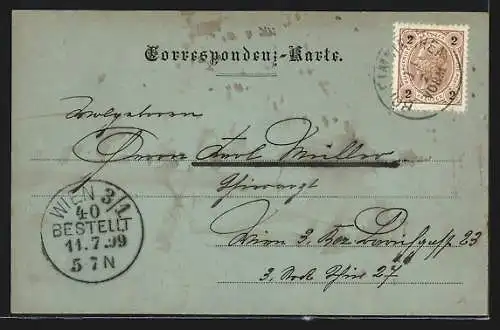 Correspondenz-Karte.
2 2
2 2
Wolgeboren
Herrn Karl Müller
Thierarzt
Wien 3. Bez. 23
3. Stock Thür 27
WIEN 3/1
40
BESTELLT
11.7.99
5-7N